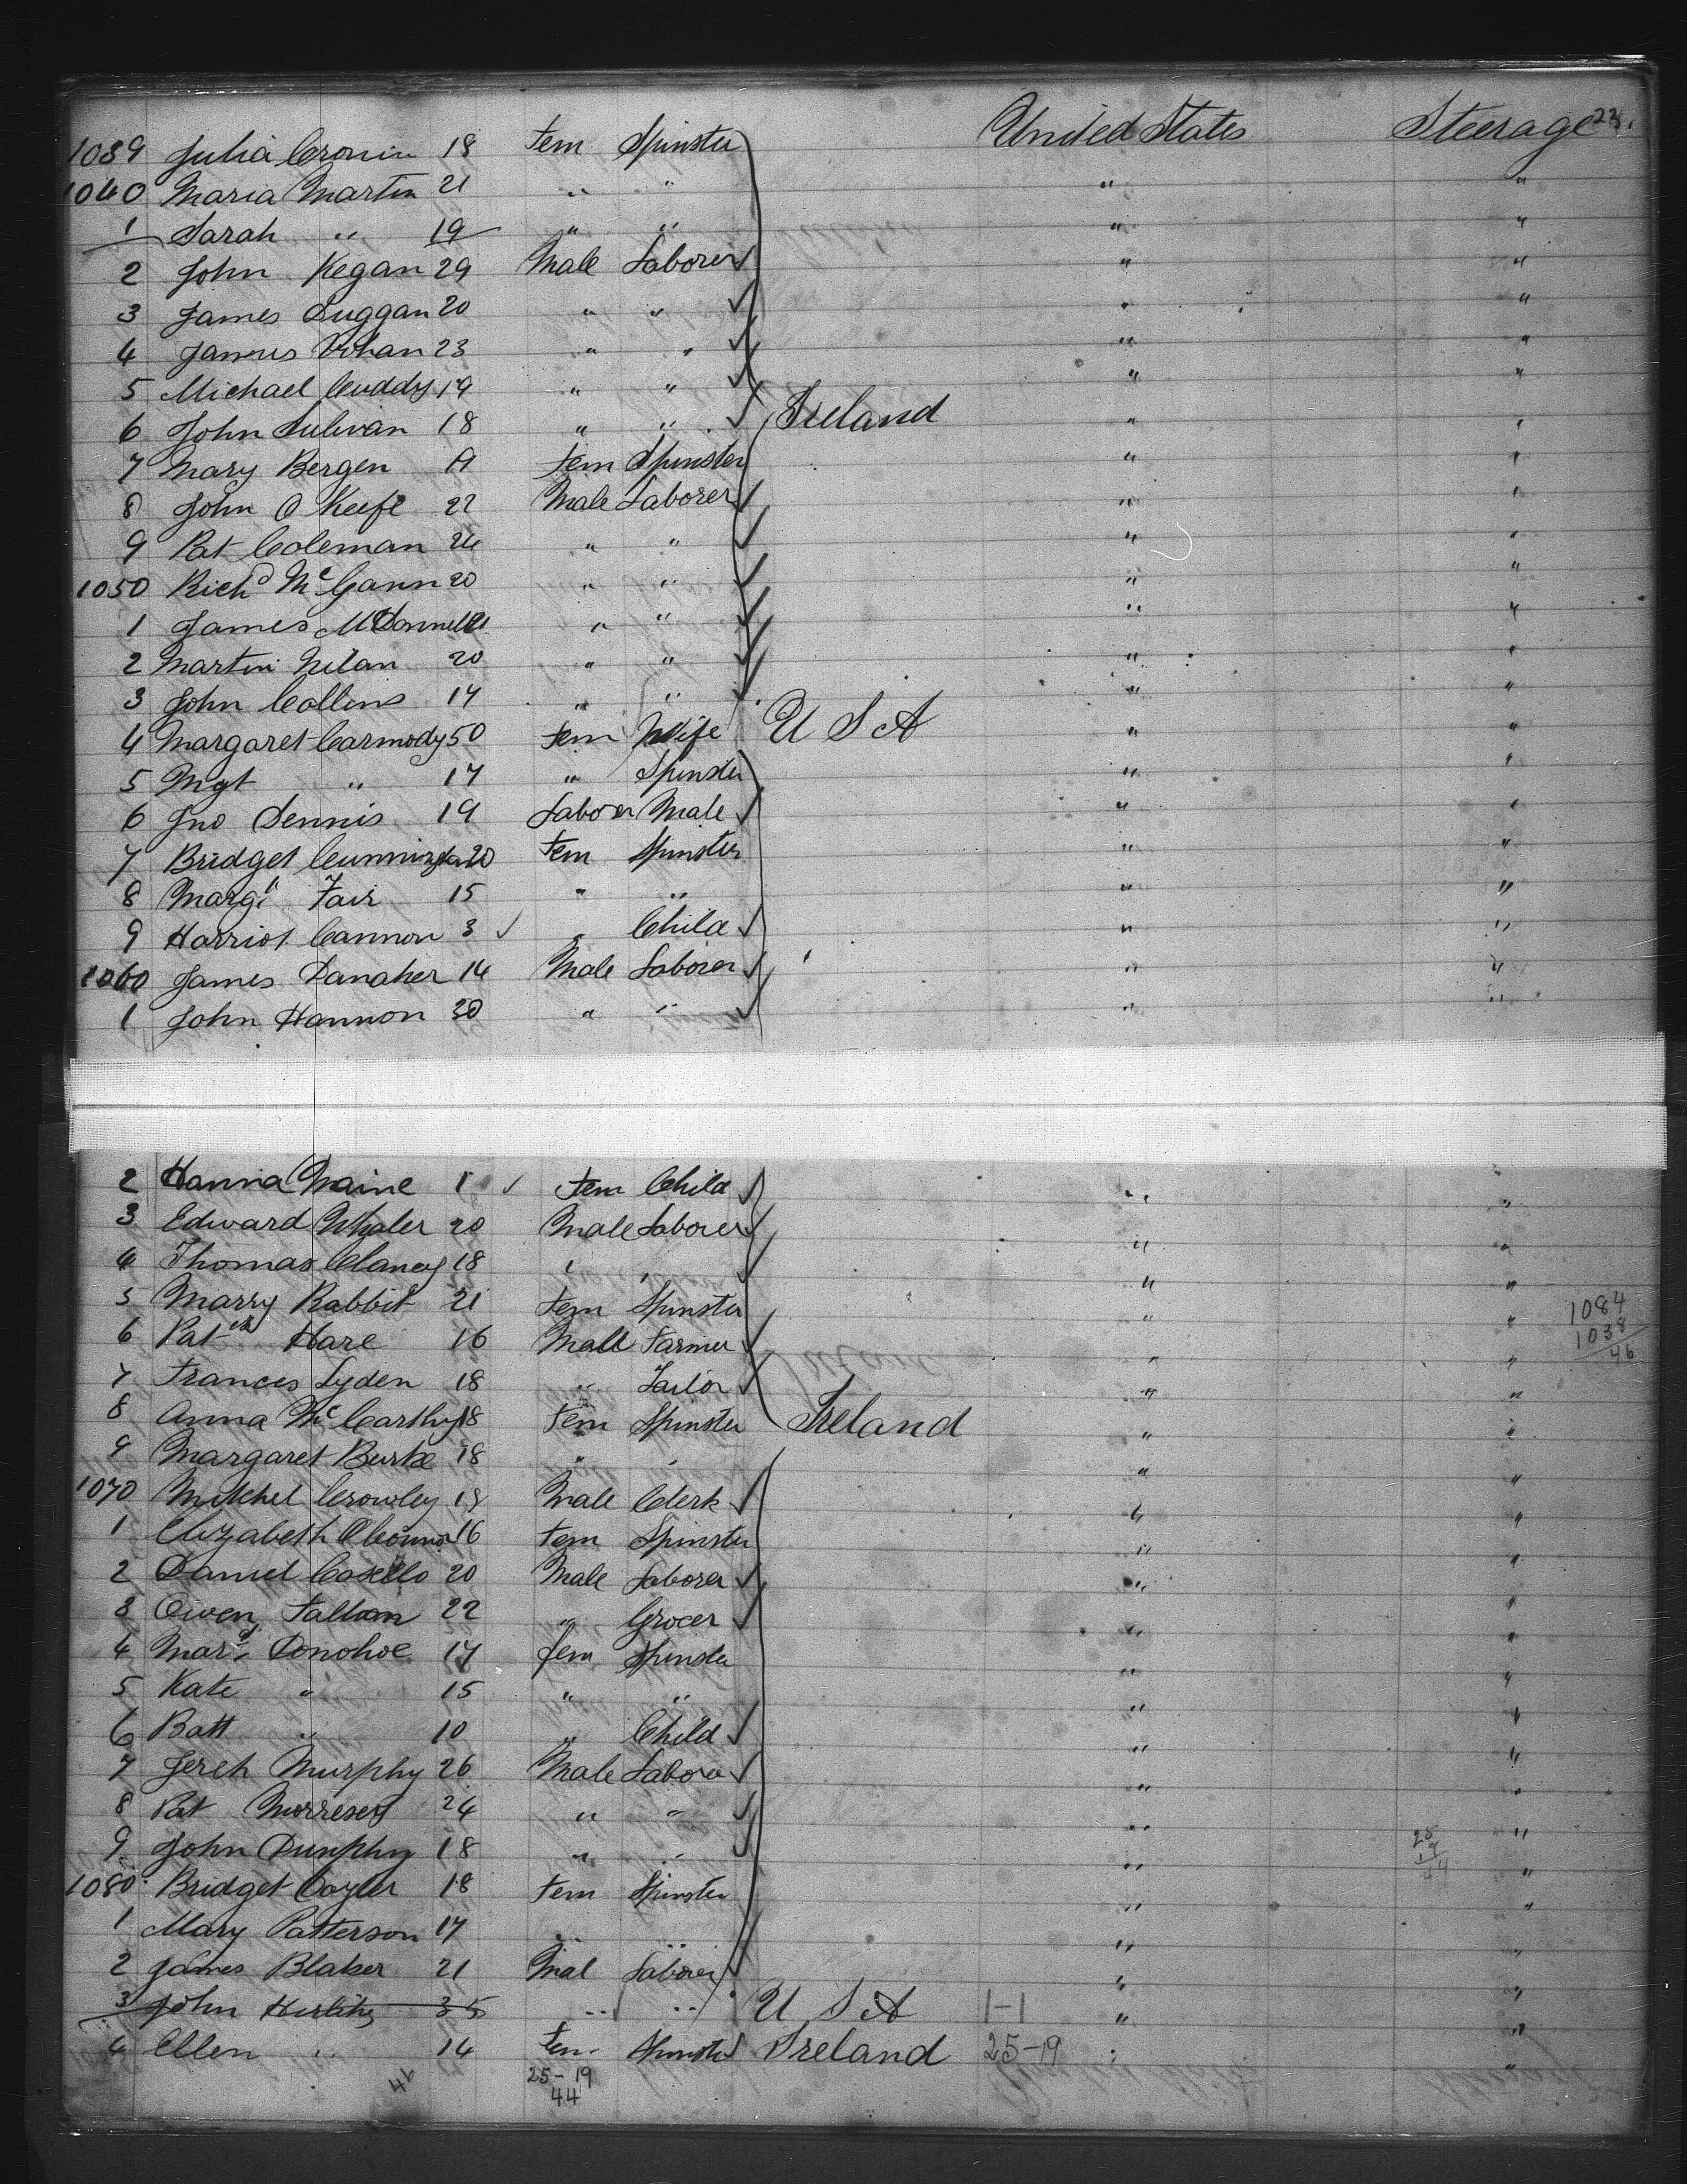 1039 Julia Cronin 18 Fem Spinster United States Steerage 23.
1040 Maria Martin 21 " " " "
1 Sarah " 19 " " " "
2 John Kegan 29 Male Laborer " "
3 James Duggan 20 " " " "
4 James Vohan 23 " " " "
5 Michael Cuddy 19 " " " "
6 John Sulivan 18 " " Ireland " "
7 Mary Bergen 19 Fem Spinster " "
8 John O Keefe 22 Male Laborer " "
9 Pat Coleman 24 " " " "
1050 Richd McGann 20 " " " "
1 James McDonnell " " " "
2 Martin Nilan 20 " " " "
3 John Collins 17 " " " "
4 Margaret Carmody 50 Fem Wife U S A " "
5 Mgt " 17 " Spinster " "
6 Jno Dennis 19 Laborer Male " "
7 Bridget 20 Fem Spinster " "
8 Margt Fair 15 " " " "
9 Harriot Cannon 3 " Child " "
1060 James Danaher 14 Male Laborer " "
1 John Hannon 30 " " " "
2 Hanna Maine 1 Fem Child " "
3 Edward Whaler 20 Male Laborer " "
4 Thomas Clancy 18 " " " "
5 Marry Rabbit 21 Fem Spinster " " 1084
6 Patck Hare 16 Male Farmer " " 1038
46
7 Frances Lyden 18 " Tailor " "
8 Anna McCarthy 18 Fem Spinster Ireland " "
9 Margaret Burke 18 " " " "
1070 Mitchel Crowley 18 Male Clerk " "
1 Elizabeth OConnor 16 Fem Spinster " "
2 Daniel Cosello 20 Male Laborer " "
3 Owen Fallon 22 " Grocer " "
4 Margt Donohoe 17 Fem Spinster " "
5 Kate " 15 " " " "
6 Batt " 10 " Child " "
7 Jereh Murphy 26 Male Laborer " "
8 Pat 24 " " " "
9 John Dunphy 18 " " " "
1080 Bridget Coyler 18 Fem Spinster " "
1 Mary Patterson 17 " " " "
2 James Blaker 21 Mal Laborer " "
3 John Herlihy 35 " " U S A 1-1 " "
4 Ellen " 14 Fem Spinster Ireland 25-19 " "
46 25-19
44